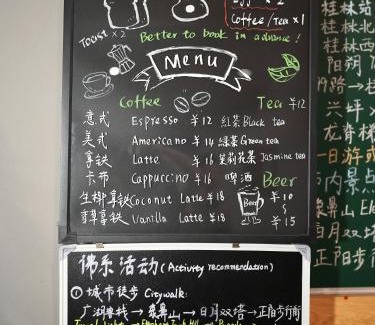 Coffee/Tea x1
Toast x2
Better to book in advance!
Menu
Coffee
Tea ¥12
意式 Espresso ¥12 紅茶 Black tea
美式 Americano ¥14 綠茶 Green tea
拿铁 Latte ¥16 茉莉花茶 Jasmine tea
卡布 Cappuccino ¥16 啤酒 Beer
生椰拿铁 Coconut Latte ¥18 Beer ¥10
香草拿铁 Vanilla Latte ¥18 ¥15
佛系活动 (Activity recommendation)
① 城市徒步 Citywalk:
象鼻山 → 日月双塔 → 正阳步行街
桂林
桂林北
桂林西
阳朔
路→
兴坪
龙脊梯
一日游
内景点
象鼻山 Ele
日月双
正阳步